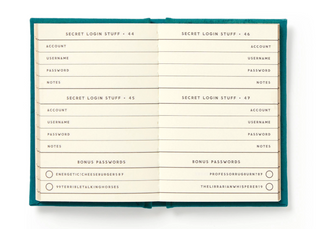 SECRET LOGIN STUFF - 44
ACCOUNT
USERNAME
PASSWORD
NOTES
SECRET LOGIN STUFF - 45
ACCOUNT
USERNAME
PASSWORD
NOTES
BONUS PASSWORDS
SECRET LOGIN STUFF - 46
ACCOUNT
USERNAME
PASSWORD
NOTES
SECRET LOGIN STUFF - 47
ACCOUNT
USERNAME
PASSWORD
NOTES
BONUS PASSWORDS